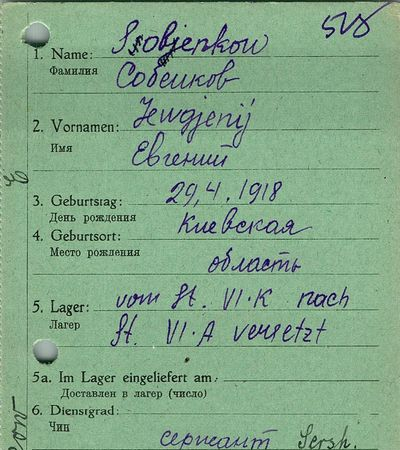 1. Name: Ssobjenkow
Фамилия Собенков
2. Vornamen: Jewgjenij
Имя Евгений
3. Geburtstag: 29,4.1918
День рождения
4. Geburtsort: Киевская
Место рождения область
5. Lager: vom St. VI·K nach
Лагер St. VI·A versetzt
5a. Im Lager eingeliefert am:
Доставлен в лагер (число)
6. Dienstgrad:
Чин сержант Sersh.